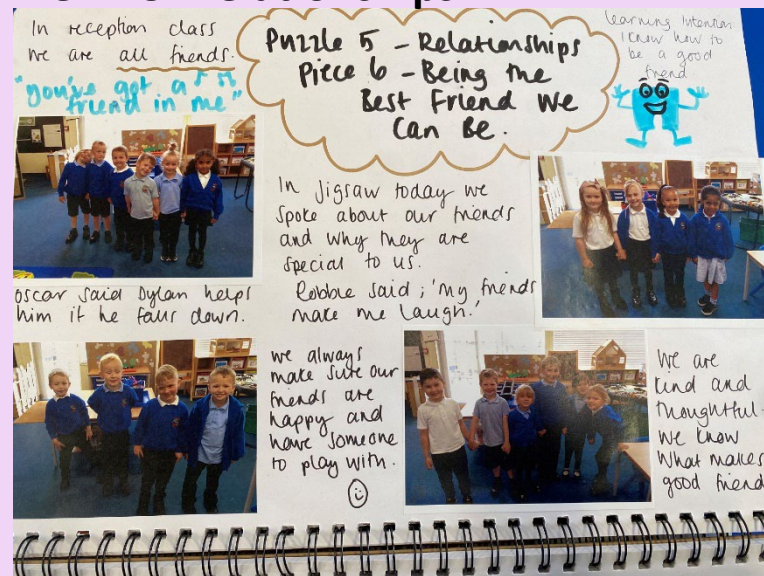 In reception class
we are all friends.
"you've got a
friend in me"
Puzzle 5 - Relationships
Piece 6 - Being the
Best Friend We
Can Be.
learning Intention:
I know how to
be a good
friend
In Jigsaw today we
spoke about our friends
and why they are
special to us.
Robbie said; 'my friends
make me laugh.'
oscar said Dylan helps
him if he falls down.
we always
make sure our
friends are
happy and
have someone
to play with.
We are
kind and
thoughtful.
We know
what makes
good friend